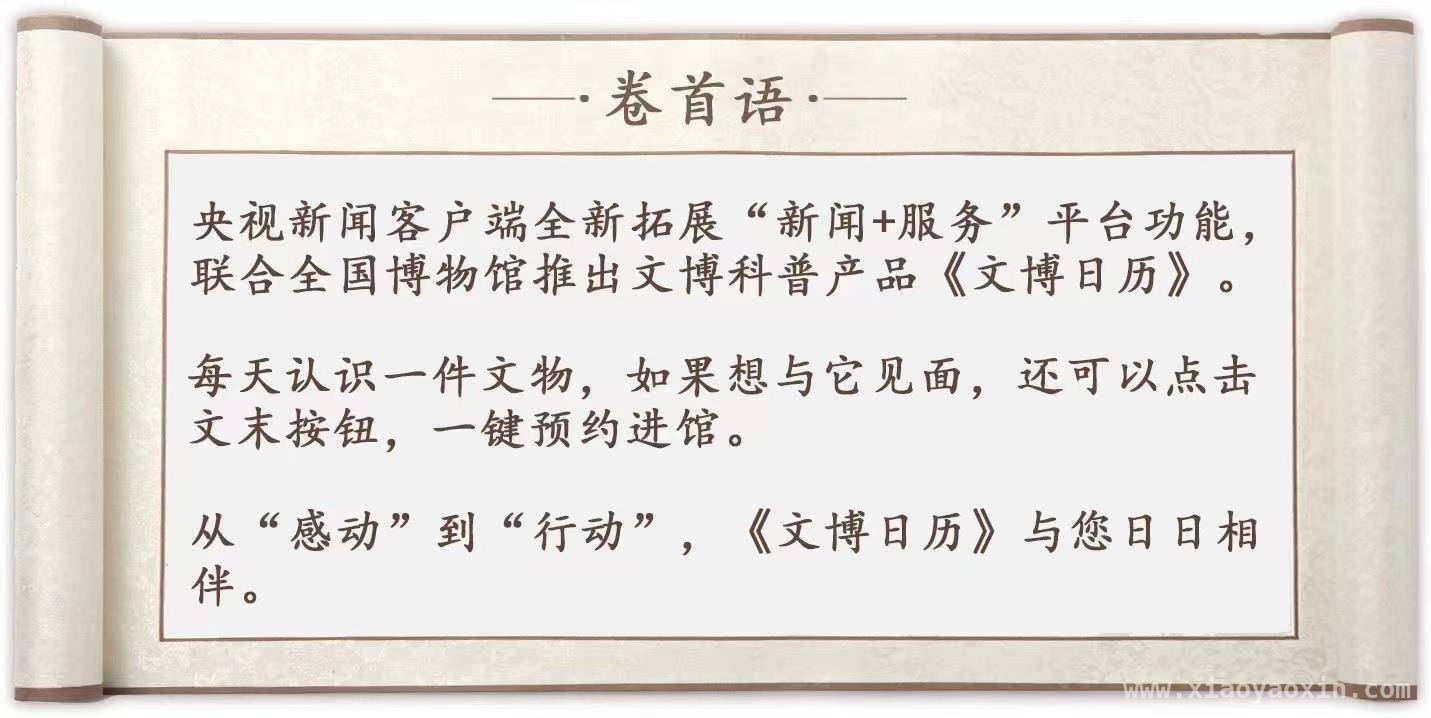 卷首语
央视新闻客户端全新拓展“新闻+服务”平台功能，
联合全国博物馆推出文博科普产品《文博日历》。
每天认识一件文物，如果想与它见面，还可以点击
文末按钮，一键预约进馆。
从“感动”到“行动”，《文博日历》与您日日相
伴。
www.xiaoyaoxin.com